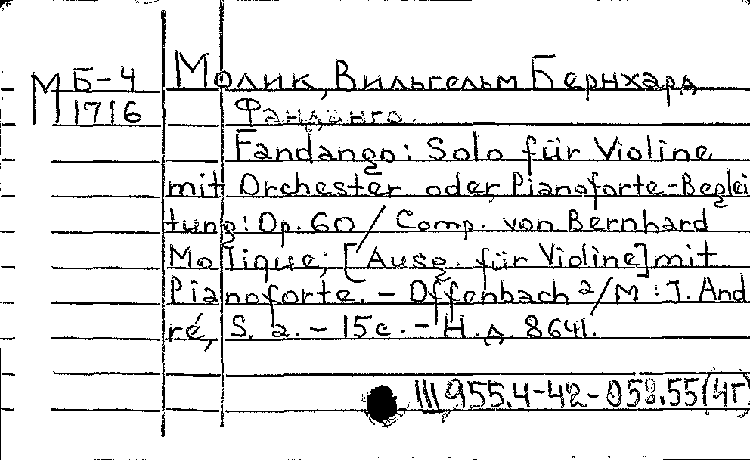 М Б-4
1716
Молик, Вильгельм Бернхард
Фанданго.
Fandango: Solo für Violine
mit Orchester oder Pianoforte-Beglei
tung: Op. 60 / Comp. von Bernhard
Molique; [Ausg. für Violine] mit
Pianoforte. - Offenbach a/M : J. And
ré, S. a. - 15 с. - Н. д. 8641.
III 955.4-42-058.55(4Г)